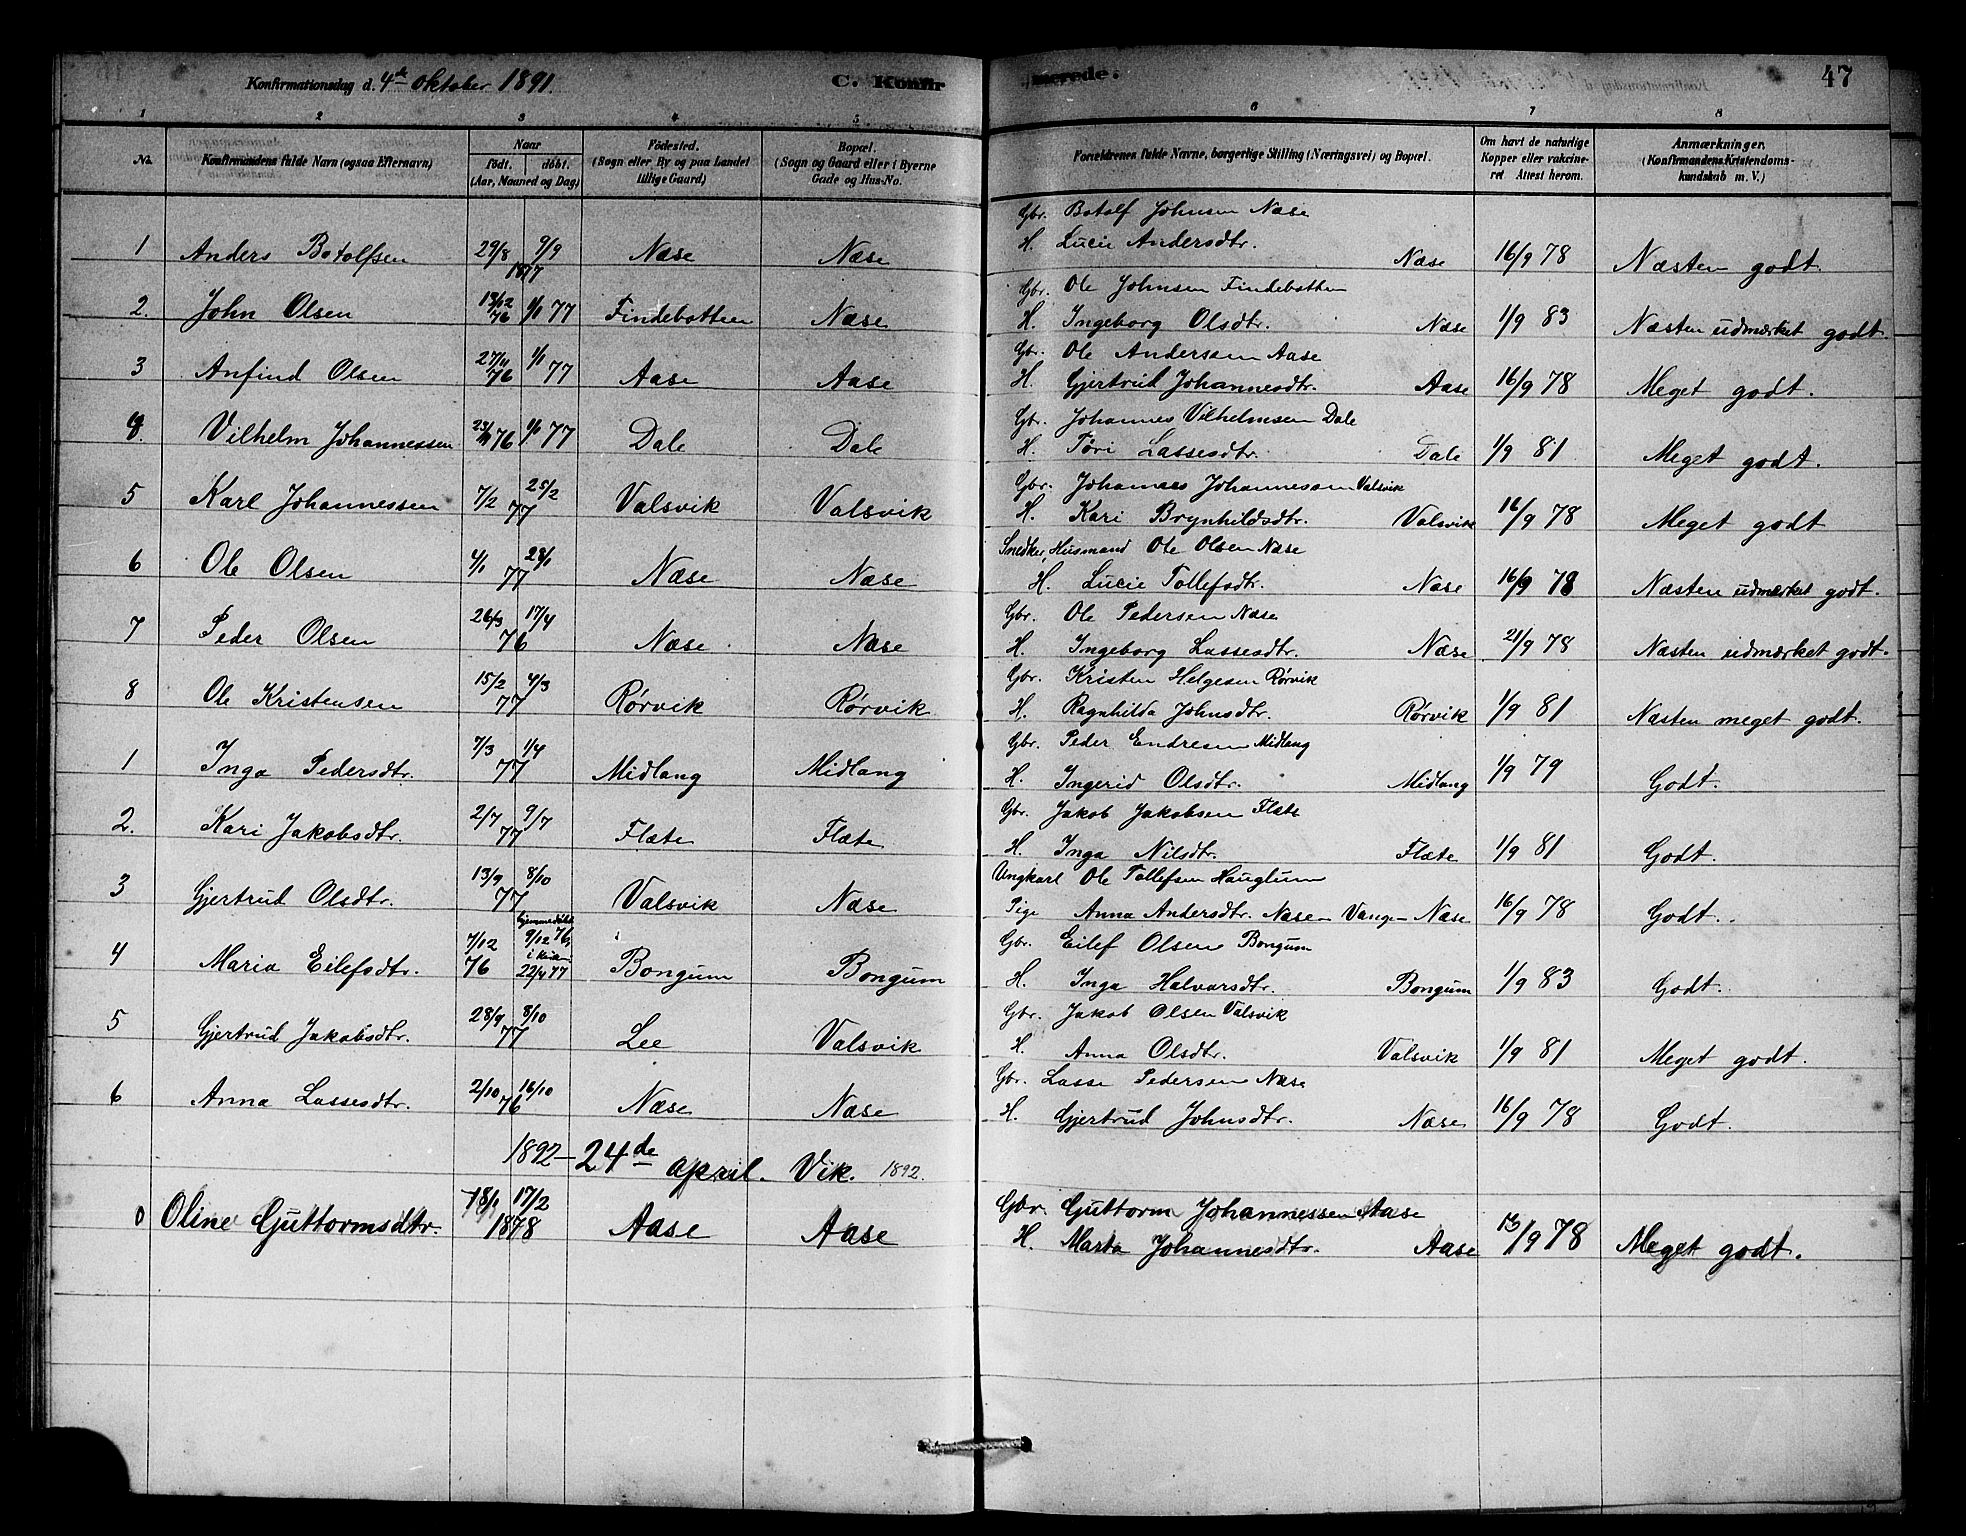 Konfirmationsdag d. 4de Oktober 1891.
C. Konfirmerede.
47
1 2 3 4 5 6 7 8
No. Konfirmandens fulde Navn (ogsaa Efternavn) Naar født. døbt. (Aar, Maaned og Dag) Fødested. (Sogn eller By og paa Landet tillige Gaard) Bopæl. (Sogn og Gaard eller i Byerne Gade og Hus-No. Forældrenes fulde Navne, borgerlige Stilling (Næringsvei) og Bopæl. Om havt de naturlige Kopper eller vakcineret Attest herom. Anmærkninger. (Konfirmandens Kristendomskundskab m. V.)
Gbr. Botolf Johnsen Næse
1 Anders Botolfsen 29/8 9/9 1877 Næse Næse H. Lucie Andersdtr. Næse 16/9 78 Næsten godt.
Gbr. Ole Johnsen Findebotten
2. John Olsen 13/12 76 1/1 77 Findebotten Næse H. Ingeborg Olsdtr. Næse 1/9 83 Næsten udmærket godt.
Gbr. Ole Anderssen Aase
3 Anfind Olsen 27/11 76 1/1 77 Aase Aase H. Gjertrud Johannesdtr. Aase 16/9 78 Meget godt.
Gbr. Johannes Vilhelmsen Dale
4. Vilhelm Johannessen 23/11 76 1/1 77 Dale Dale H. Tøri Lassesdtr. Dale 1/9 81 Meget godt.
Gbr. Johannes Johannessen Valsvik
5 Karl Johannessen 7/2 25/2 77 Valsvik Valsvik H. Kari Brynhildsdtr. Valsvik 16/9 78 Meget godt
Snedker, Husmand Ole Olsen Næse
6 Ole Olsen 4/1 28/1 77 Næse Næse H. Lucie Tollefsdtr. Næse 16/9 78 Næsten udmærket godt.
Gbr. Ole Pedersen Næse
7 Peder Olsen 26/3 17/4 76 Næse Næse H. Ingeborg Lassesdtr. Næse 21/9 78 Næsten udmærket godt.
Gbr. Kristen Helgesen Rørvik
8 Ole Kristensen 15/2 4/3 77 Rørvik Rørvik H. Ragnhilda Johnsdtr. Rørvik 1/9 81 Næsten meget godt.
Gbr. Peder Endresen Midlang
1 Inga Pedersdtr. 7/3 1/4 77 Midlang Midlang H. Ingerid Olsdtr. Midlang 1/9 79 Godt.
Gbr. Jakob Jakobsen Flæte
2. Kari Jakobsdtr. 2/7 9/7 77 Flæte Flæte H. Inga Nilsdtr. Flæte 1/9 81 Godt.
Ungkarl Ole Tollefsen Hauglum
3 Gjertrud Olsdtr. 13/9 8/10 77 Valsvik Næse Pige Anna Andersdtr. Næse - Vange - Næse 16/9 78 Godt.
Gbr. Eilef Olsen Bongum
4 Maria Eilefsdtr. 7/12 76 hjemmedøbt 9/12 76, i Kirken 22/4 77 Bongum Bongum H. Inga Halvarsdtr. Bongum 1/9 83 Godt.
Gbr. Jakob Olsen Valsvik
5 Gjertrud Jakobsdtr. 28/9 8/10 77 Lee Valsvik H. Anna Olsdtr. Valsvik 1/9 81 Meget godt.
Gbr. Lasse Pedersen Næse
6 Anna Lassesdtr. 2/10 16/10 76 Næse Næse H. Gjertrud Johnsdtr. Næse 16/9 78 Godt.
1892 - 24de april. Vik. 1892.
Gbr. Guttorm Johannessen Aase
0 Oline Guttormsdtr. 18/1 17/2 1878 Aase Aase H. Marta Johannesdtr. Aase 13/9 78 Meget godt.